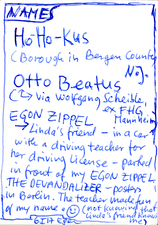 NAMES
Ho-Ho-Kus
(Borough in Bergen County
N.J.)
Otto Beatus
(↳ via Wolfgang Scheible,
ex FHG
Mannheim)
EGON ZIPPEL
↳ Linda's friend - in a car
with a driving teacher for
her driving license - parked
in front of my EGON ZIPPEL
THE DEVANDALIZER - poster
in Berlin. The teacher made fun
of my name. (not knowing that
Linda's friend knows
me)